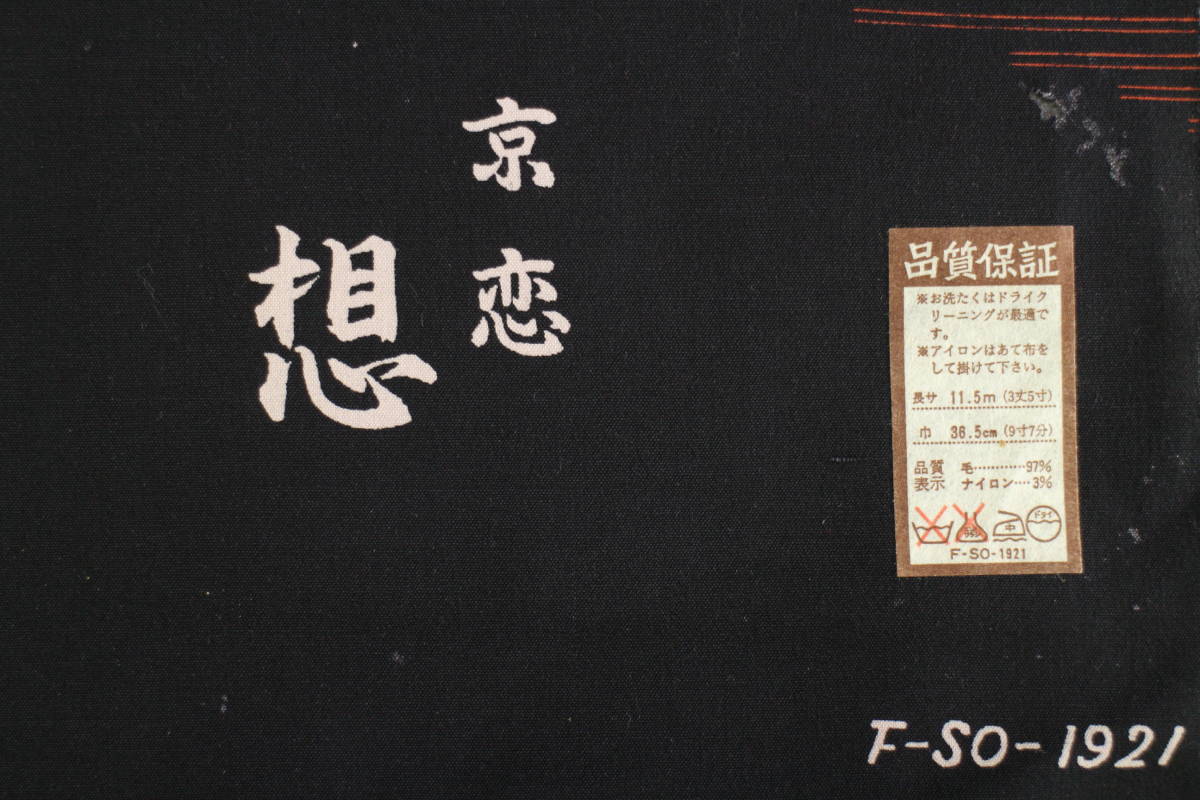 京恋
想
品質保証
※お洗たくはドライク
リーニングが最適で
す。
※アイロンはあて布を
して掛けて下さい。
長サ 11.5m (3丈5寸)
巾 36.5cm (9寸7分)
品質 毛…………97%
表示 ナイロン‥‥3%
中
ドライ
F-SO-1921
F-SO-1921